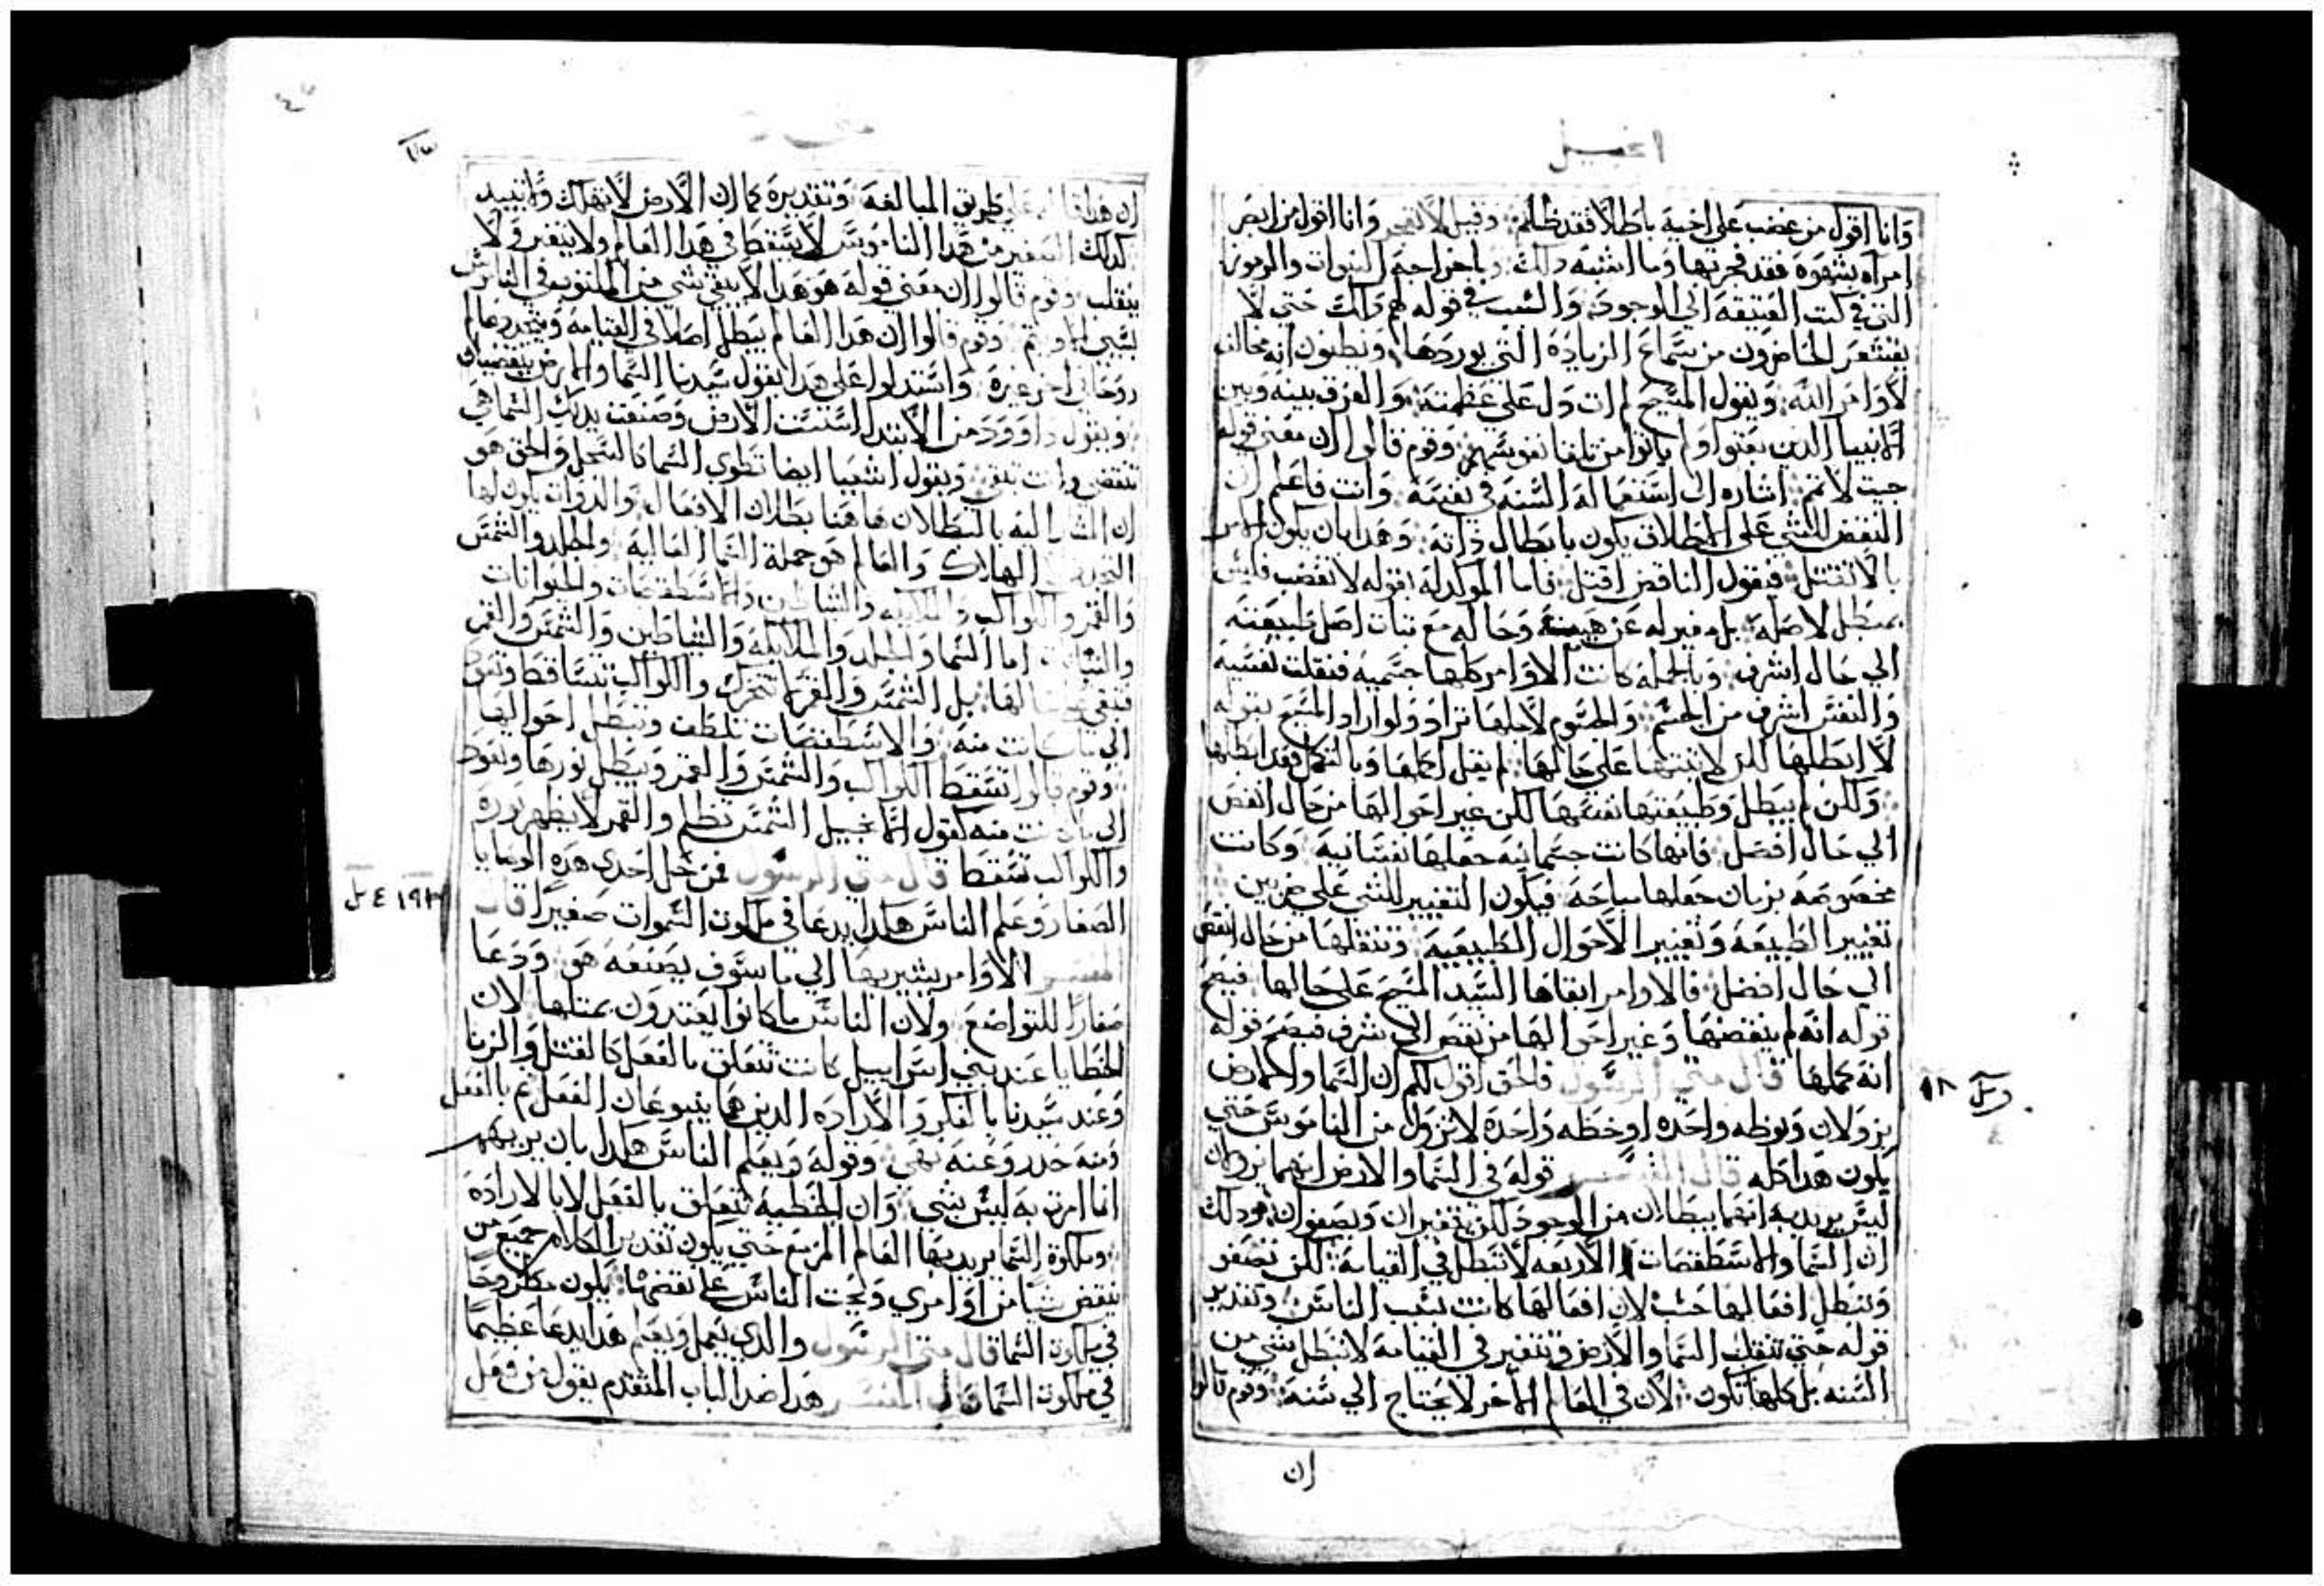 انجيل
وانا اقول من غضب على اخيه باطلا فقد ظلم وقيل لا تفجر وانا اقول من ابصر
امراه بشهوة فقد فجر بها وما اشبه دلك وباخراجه النبوات والرموز
التي في كتب العتيقه الي الوجود والسبب في قوله لهم دلك حتي لا
يقشعر الحاضرون من سماع الزيادة التي يوردها ويظنون انه مخالف
لاوامر الله ويقول المسيح لم ات دل على عظمته والفرق بينه وبين
الانبيا الدين بعتوا ولم ياتوا من تلقا نفوسهم وقوم قالوا ان معني قوله
جيت لاتمم اشاره الي استعماله السنه في نفسه وانت فاعلم ان
النقض للشي على الاطلاق يكون بابطال داته وهدا بان يكون الامر
بالا تقتل فيقول الناقض اقتل فاما الموكد له بقوله لا تغضب فليس
بمبطل لاصله بل مغير له عن هييته وحاله مع تبات اصل طبيعته
الي حال اشرف وبالجمله كانت الاوامر كلها جسميه فنقلت نفسيه
والنفس اشرف من الجسم والجسوم لاجلها تراد ولو اراد المسيح بقوله
لا ابطلها لكن لا تبتها على حالها لم يقل اكملها وبالتكمل فقد ابطلها
ولكن لم يبطل طبيعتها نفسها لكن غير احوالها من حال انقص
الي حال افضل فانها كانت جسمانيه جعلها نفسانيه وكانت
مخصوصه بزمان جعلها سايحه فيكون التغيير للشي على ضربين
تغيير الطبيعه وتغيير الاحوال الطبيعيه وتنقلها من حال انقص
الي حال افضل فالاوامر ابقاها السيد المسيح على حالها فيصح
قوله انه لم ينقضها وغير احوالها من نقص الي شرف فيصح قوله
انه كملها قال متي الرسول فالحق اقول لكم ان السما والارض
يزولان ونوطه واحده او خطه واحدة لا تزول من الناموس حتي
يكون هدا كله قال المفسر قوله في السما والارض انهما يزولان
ليس يريد به انهما يبطلان من الوجود لكن يتغيران ويصفوان ودلك
ان السما والاسطقصات الاربعه لا تبطل في القيامه لكن تصفو
وتبطل افعالها حسب لان افعالها كانت بسبب الناس وتقدير
قوله حتي تنقلب السما والارض وتتغير في القيامه لا تبطل شي من
السنه بل كلها تكون الان في العالم الاخر لا يحتاج الي سنه وقوم قالوا
ان
متي
ان هدا قاله على طريق المبالغه وتقديرة كما ان الارض لا تهلك ولا تبيد
كدلك الصغير من هدا الناموس لا يسقط في هدا العالم ولا يتغير ولا
ينقلب وقوم قالوا ان معني قوله هو هدا لا يبقي شي من المكتوب في الناموس
بسببي الا ويتم وقوم قالوا ان هدا العالم يبطل اصلا في القيامه ويتجدد عالم
روحاني اخر غيرة واستدلوا على هدا بقول سيدنا السما والارض ينقضيان
وبقول داوود من الابتدا اسست الارض وصنعت يديك السما هي
تنقضي وانت تبقي وبقول اشعيا ايضا تطوي السما كالسجل والحق هو
ان المشار اليه بالبطلان هاهنا بطلان الافعال والدوات يكون لها
التجدد الهلاك والعالم هو جملة السما العاليه والجلد والشمس
والقمر والكواكب والملايكه والشياطين والاسطقصات والحيوانات
والنبات اما السما والجلد والملايكه والشياطين والشمس والقمر
فتبقي لها بل الشمس والقمر لا تتحرك والكواكب تتساقط وتعود
الي ما كانت منه والاسطقصات تلطف وتبطل احوالها
وقوم قالوا تسقط الكواكب والشمس والقمر ويبطل نورها وتعود
الي ما كانت منه كقول الانجيل الشمس تظلم والقمر لا يظهر نوره
والكواكب تسقط قال متي الرسول فمن حل احدي هده الوصايا
الصغار وعلم الناس هكدا يدعا في ملكوت السموات صغيرا قال
المفسر الاوامر يشير بها الي ما سوف يصنعه هو ودعا
صغارا للتواضع ولان الناس ما كانوا يعتدون بمتلها لان
الخطايا عند بني اسراييل كانت تتعلق بالفعل كالقتل والزنا
وعند سيدنا بالفكر والارادة الدين هما ينبوعان الفعل ثم بالفعل
ومنه حدر وعنه نهي وقوله ويعلم الناس هكدا بان يريهم
انما امرت به ليس بشي وان الخطيه تتعلق بالفعل لا بالارادة
وملكوة السما يريد بها العالم المزمع حتي يكون تقدير الكلام جميع من
ينقض شيا من اوامري ويحت الناس على نقضها يكون مطروحا
في ملكوة السما قال متي الرسول والدي يعمل ويعلم هدا يدعا عظيما
في ملكوة السما قال المفسر هدا ضد الباب المتقدم يقول من فعل